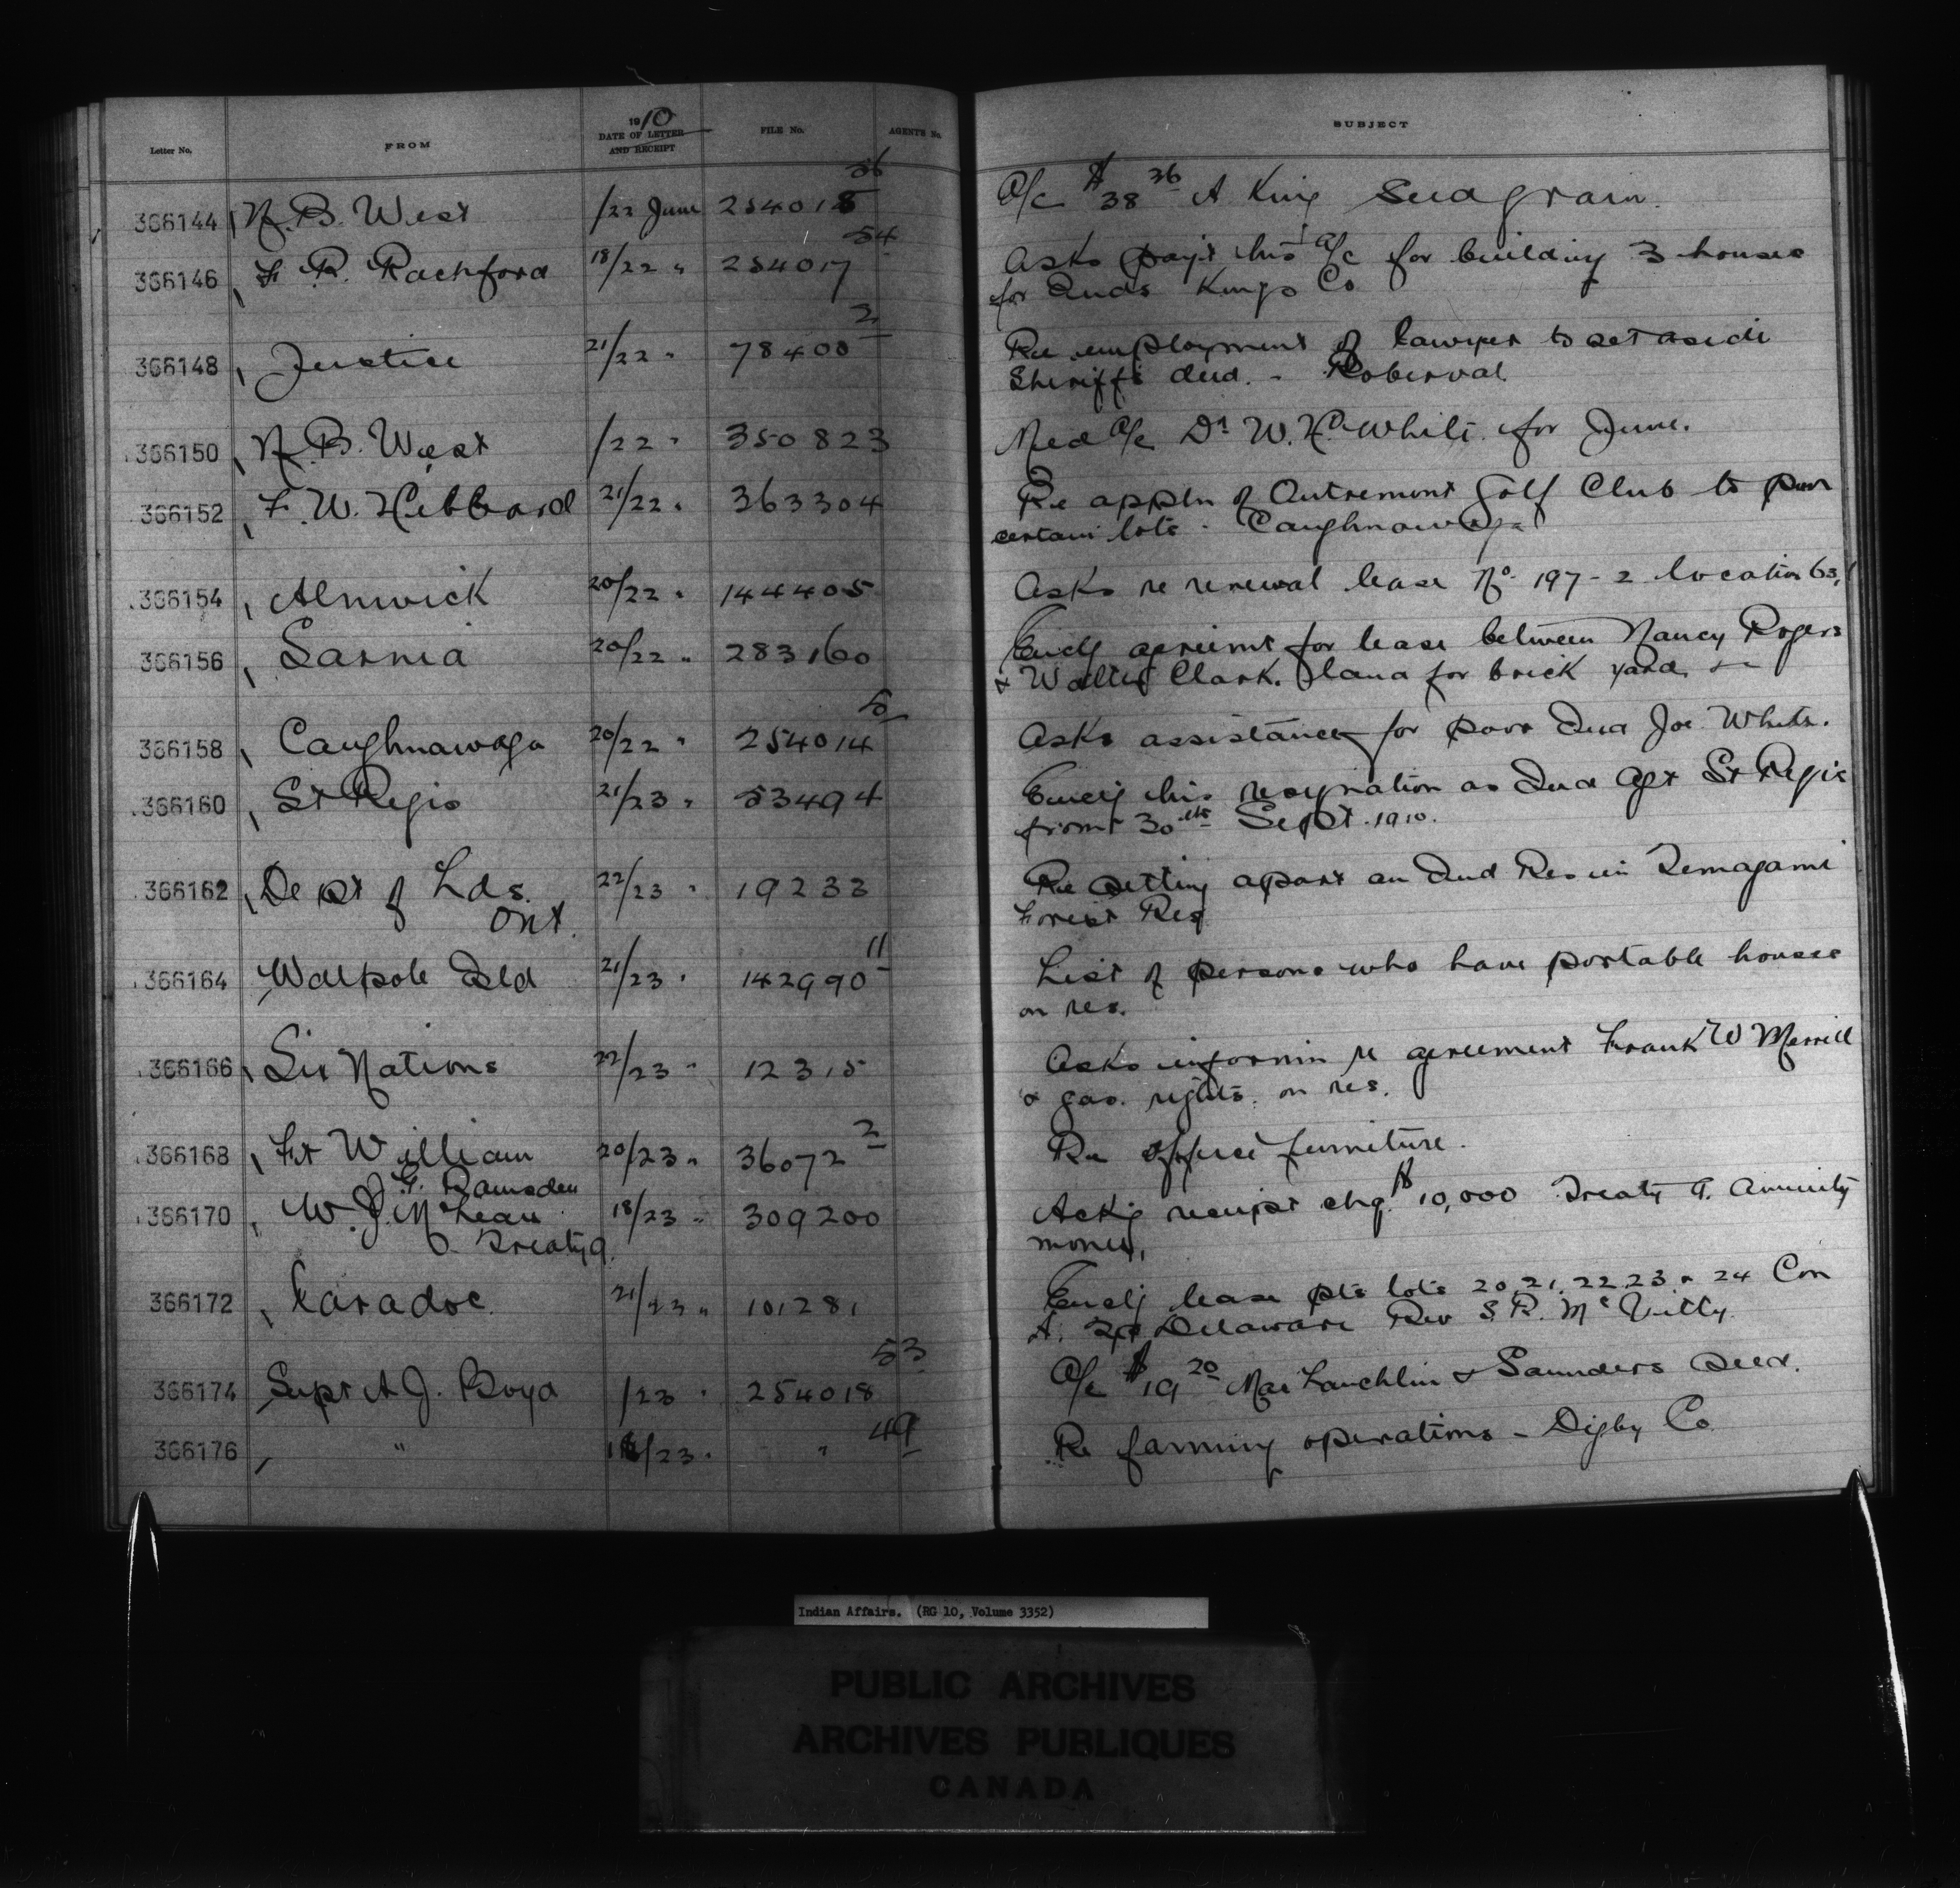 1910
Letter No. FROM DATE OF LETTER AND RECEIPT FILE No. AGENTS No. SUBJECT
366144 N. B. West /22 June 254018 36 A/c $38 36 A King Seed grain.
366146 F. R. Rachford 18/22 " 254017 54 Asks payt his a/c for building 3 houses
for Inds Kings Co
366148 Justice 21/22 " 78400 2 Re employment of lawyer to set aside
Sheriffs deed. - Roberval
366150 N. B. West /22 " 350823 Med A/c Dr W. H. White for June.
366152 F. W. Hibbard 21/22 " 363304 Re appln of Outremont Golf Club to pur
certain lots - Caughnawaga
366154 Alnwick 20/22 " 144405 Asks re renewal lease No. 197-2 location 63,
366156 Sarnia 20/22 " 283160 Encl'g agreemt for lease between Nancy Rogers
& Walter Clark. land for brick yard
366158 Caughnawaga 20/22 " 254014 5 Asks assistance for poor Ind Joe White.
366160 St Regis 21/23 " 53494 Encl'g his resignation as Ind Agt St Regis
from 30th Sept. 1910.
366162 Dept of Lds. 22/23 " 19233 Re setting apart an Ind Res in Temagami
Ont. Forest Res
366164 Walpole Isld 21/23 " 142990 11 List of persons who have portable houses
on res.
366166 Six Nations 22/23 " 12315 Asks informn re agreement Frank W Merrill
& gas. rights. on res.
366168 Ft William 20/23 " 36072 2 Re office furniture.
J. G. Ramsden
366170 W. J. McLean 18/23 " 309200 Ackg receipt chq. $10,000 Treaty 9. annuity
Treaty 9. money,
366172 Caradoc 21/23 " 101281 Encl'g lease pts lots 20, 21, 22, 23 & 24 Con
A. Delaware Rev S. R. McVitty
366174 Supt A J. Boyd /23 " 254018 53 A/c $19 20 MacLauchlin & Saunders seed.
366176 " /23 " " 49 Re farming operations - Digby Co
Indian Affairs. (RG 10, Volume 3352)
PUBLIC ARCHIVES
ARCHIVES PUBLIQUES
CANADA